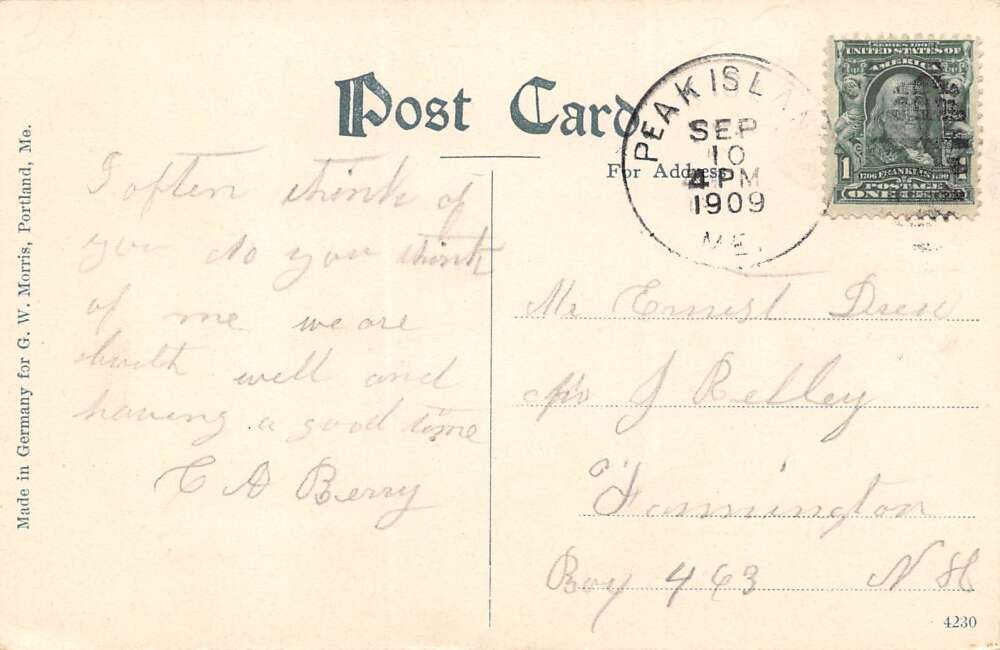 Post Card
For Address
PEAK ISLAN
SEP
10
4 PM
1909
ME.
SERIES 1902
UNITED STATES OF
AMERICA
1 1
1706 FRANKLIN 1790
POSTAGE
ONE CENT
I often think of
you do you think
of me we are
both well and
having a good time
C A Berry
Mr Ernest Drew
c/o J Relley
Farmington
Box 463 N H
Made in Germany for G. W. Morris, Portland, Me.
4230